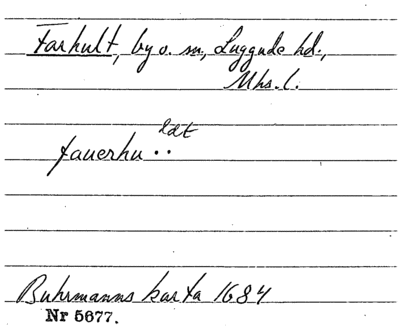 Farhult, by o. sn, Luggude hd.,
Mhs. l.
ldt
fauerhu ..
Buhrmanns karta 1684
Nr 5677.